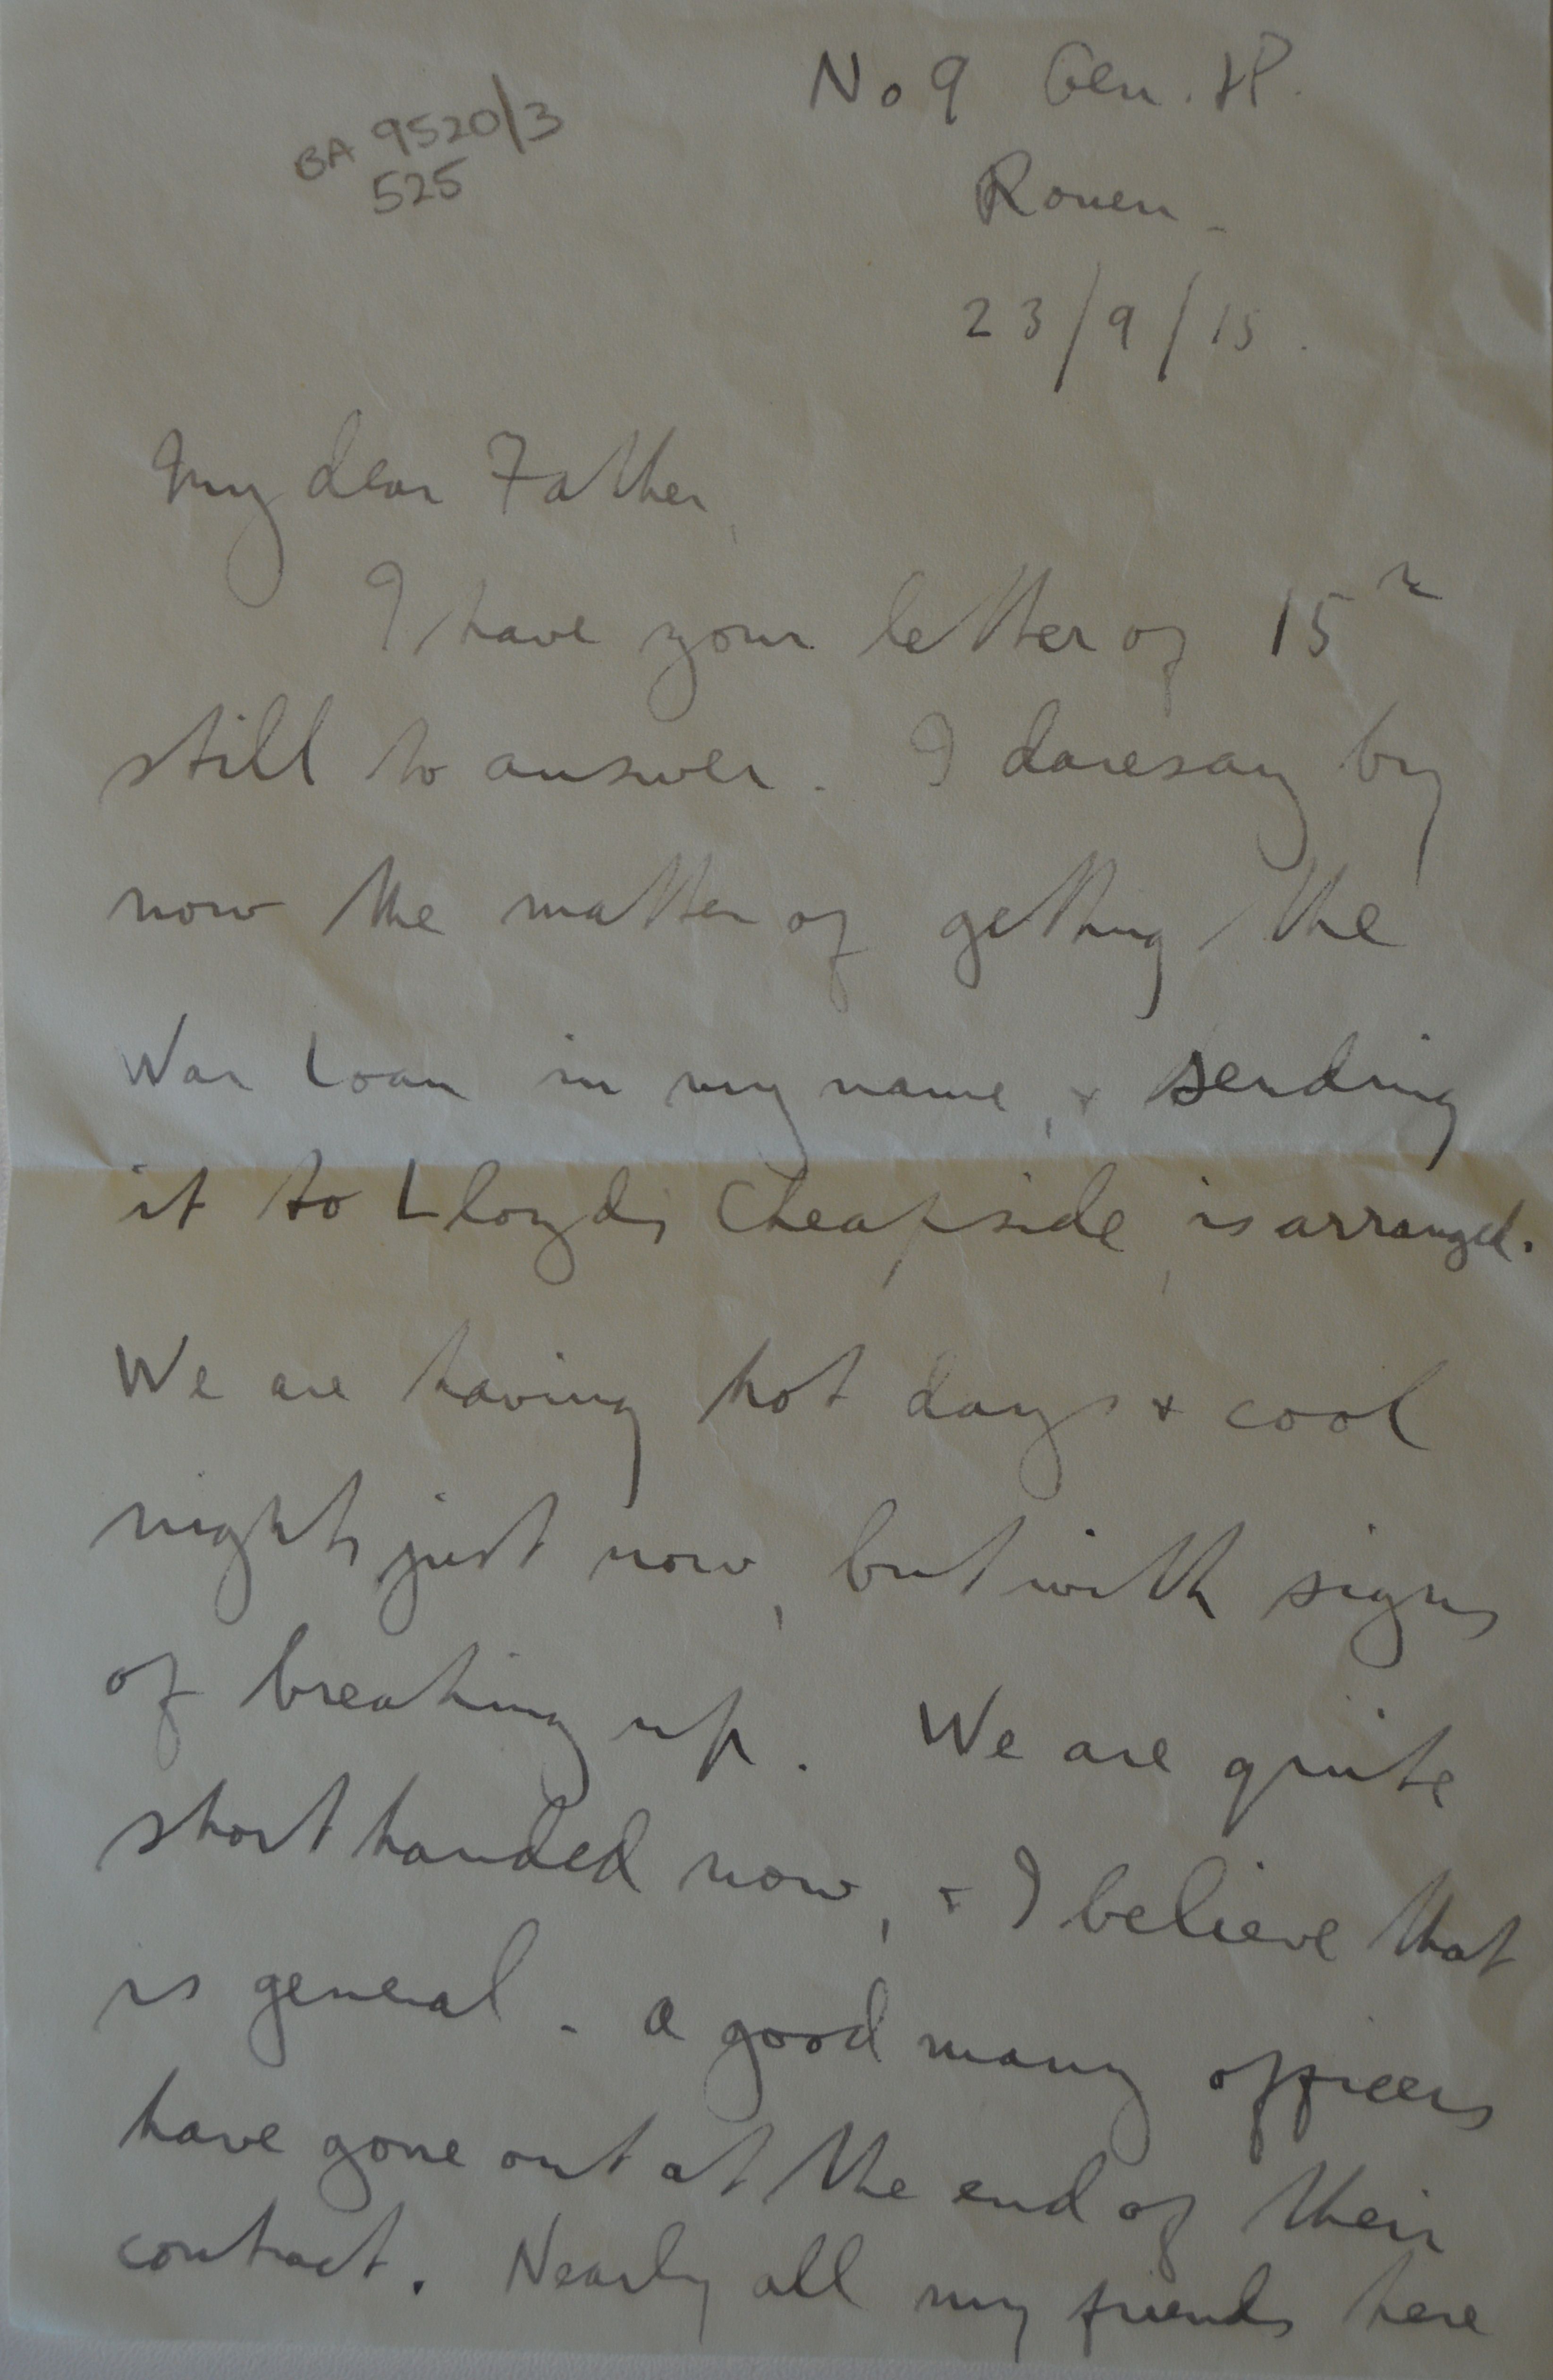 No 9 Gen. H.
BA 9520/3
525
Rouen.
23/9/15.
My dear Father,
I have your letter of 15th
still to answer. I daresay by
now the matter of getting the
War Loan in my name, + sending
it to Lloyds, Cheapside, is arranged.
We are having hot days + cool
nights just now, but with signs
of breaking up. We are quite
short handed now, + I believe that
is general. A good many officers
have gone out at the end of their
contract. Nearly all my friends here